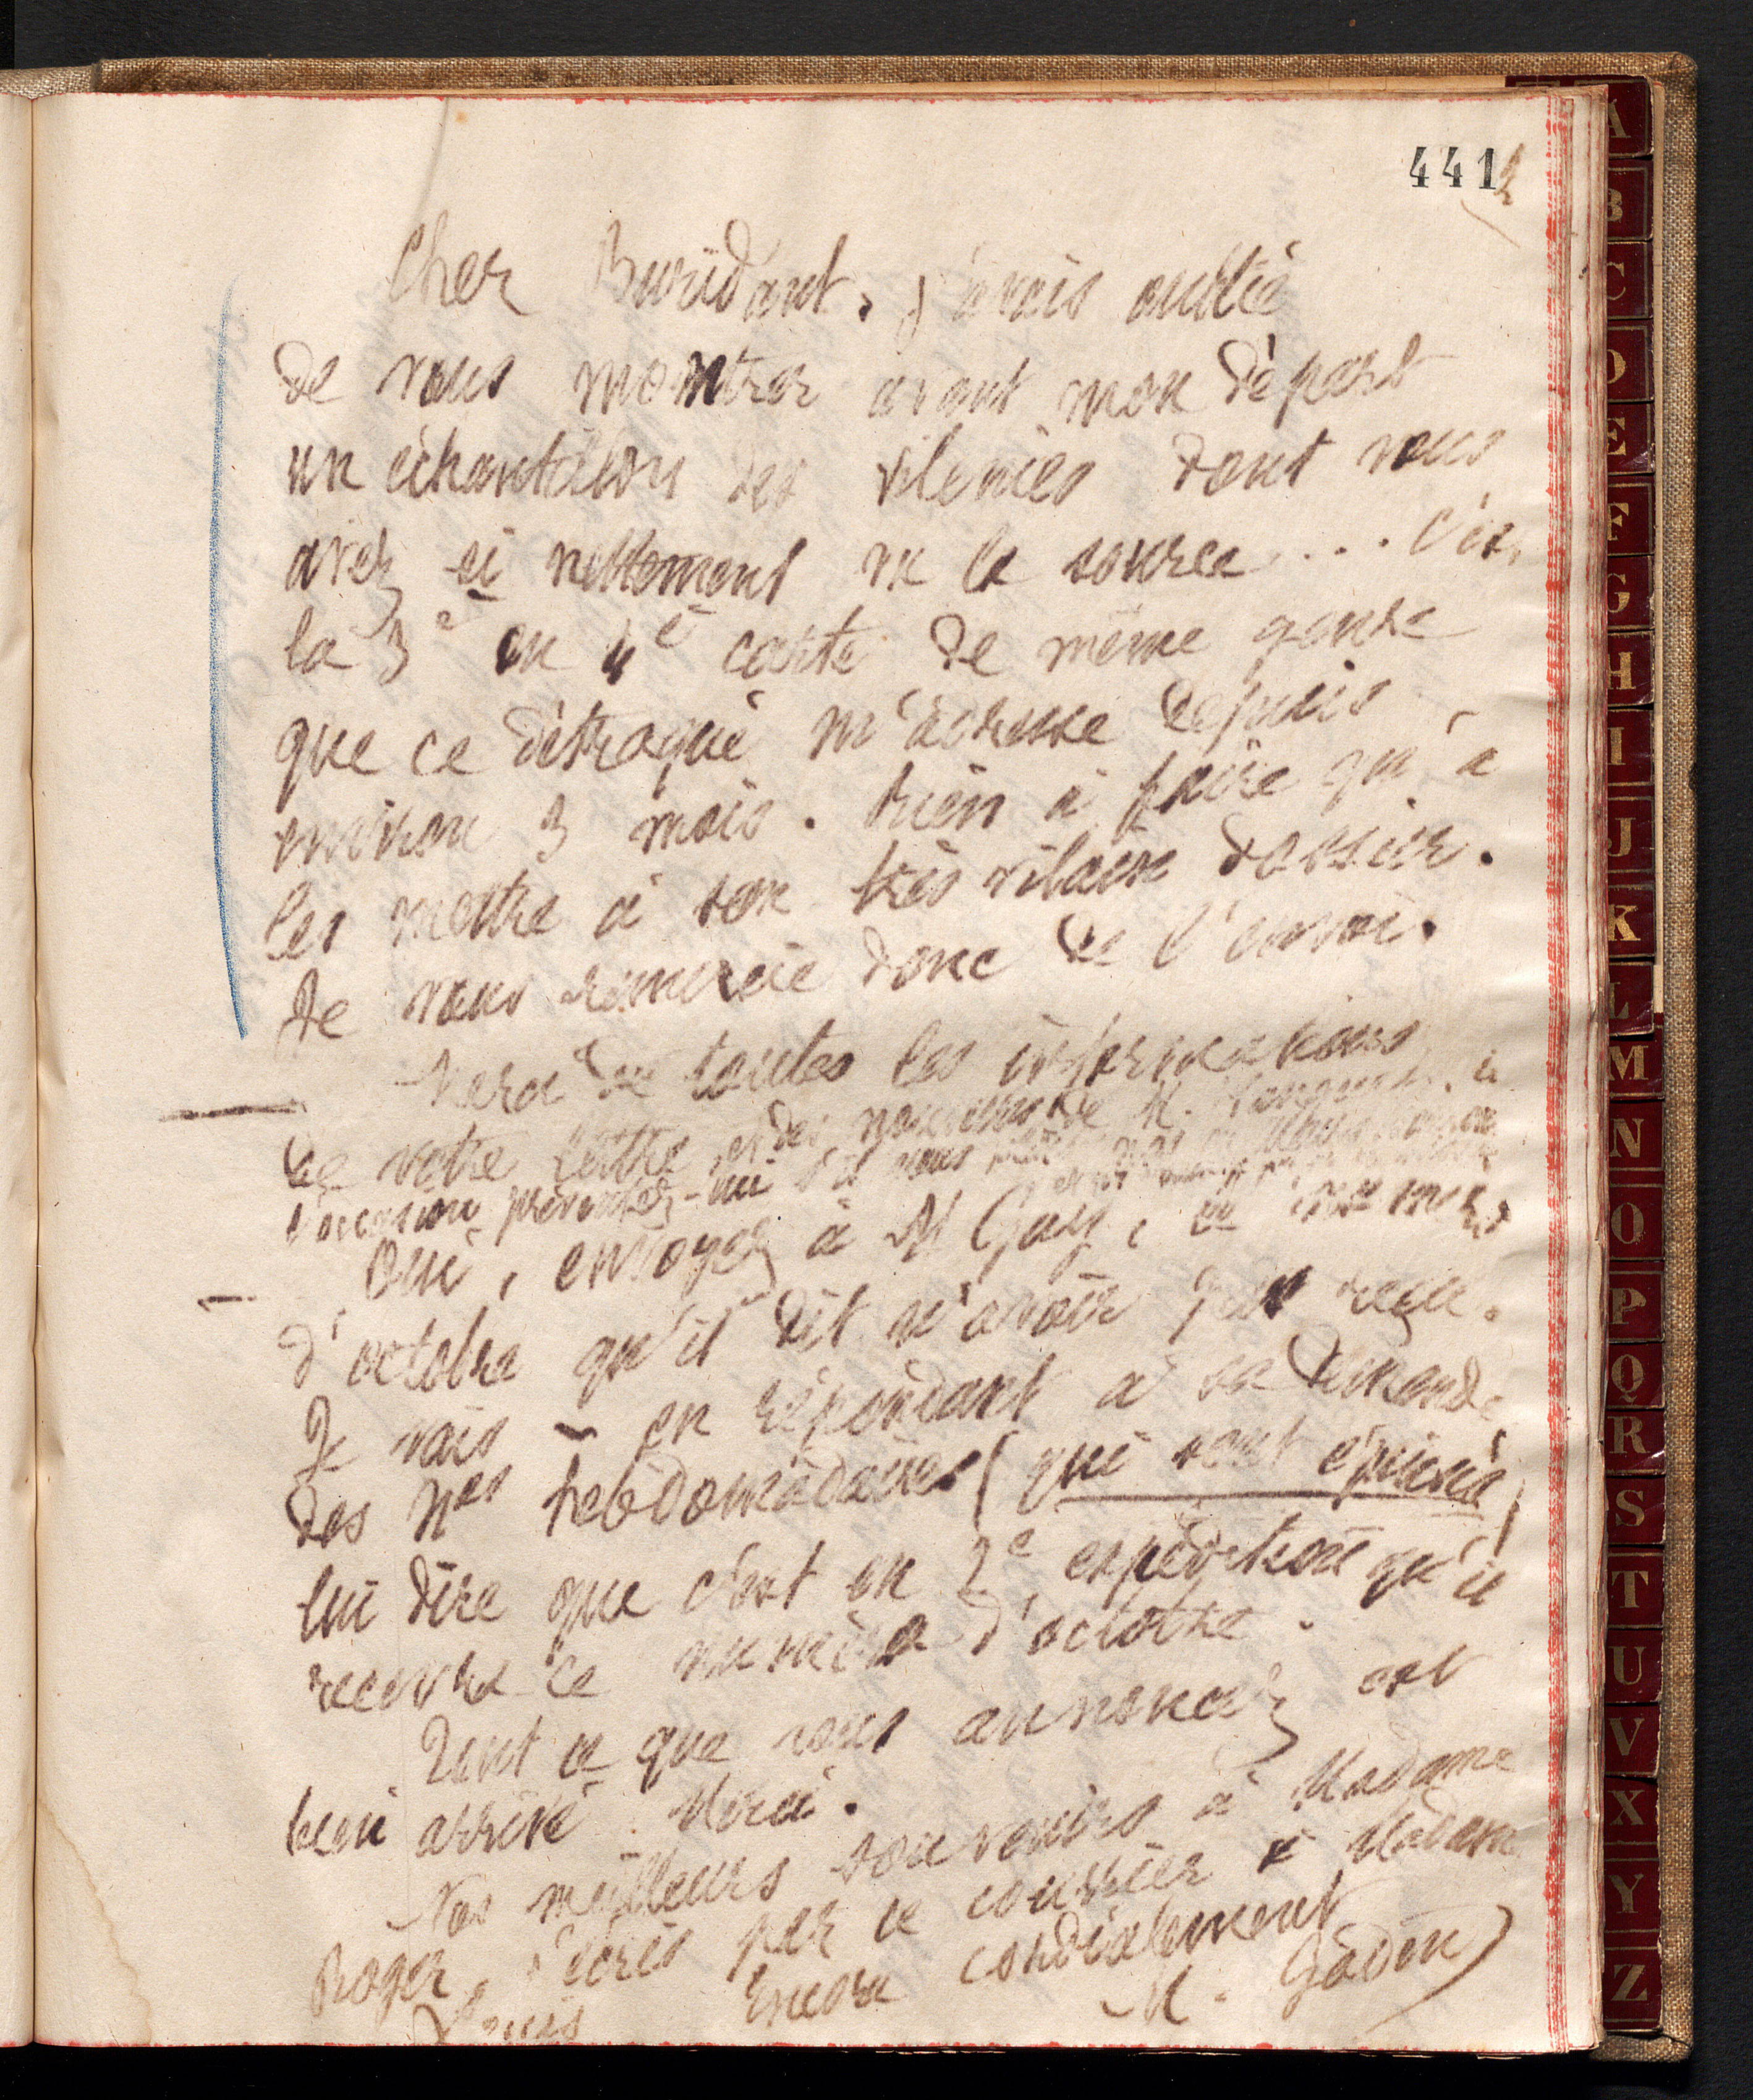 441 2
Cher Buridant. J'avais oublié
de vous montrer avant mon départ
un échantillon des vilenies dont vous
avez si nettement vu la source ... C'est
la 3e ou 4e carte de même genre
que ce détraqué m'adresse depuis
environ 3 mois. Rien à faire qu'à
les mettre à son très vilain dossier.
Je vous remercie donc de l'envoi.
Merci de toutes les informations
de votre lettre et des nouvelles de M.
l'occasion présentez-lui s'il vous
Oui, envoyez à M Gay, ce
d'octobre qu'il dit n'avoir pas reçu.
Je vais – en répondant à sa demande
des Nos hebdomadaires (qui sont épuisés)
lui dire que c'est en 2e expédition qu'il
recevra ce numéro d'octobre.
Tout ce que vous annoncez est
bien arrivé. Merci.
Nos meilleurs souvenirs à Madame
Roger. J'écris par ce courrier à Madame
Louis Encore cordialement
M. Godin
A
B
C
D
E
F
G
H
I
J
K
L
M
N
O
P
Q
R
S
T
U
V
X
Y
Z